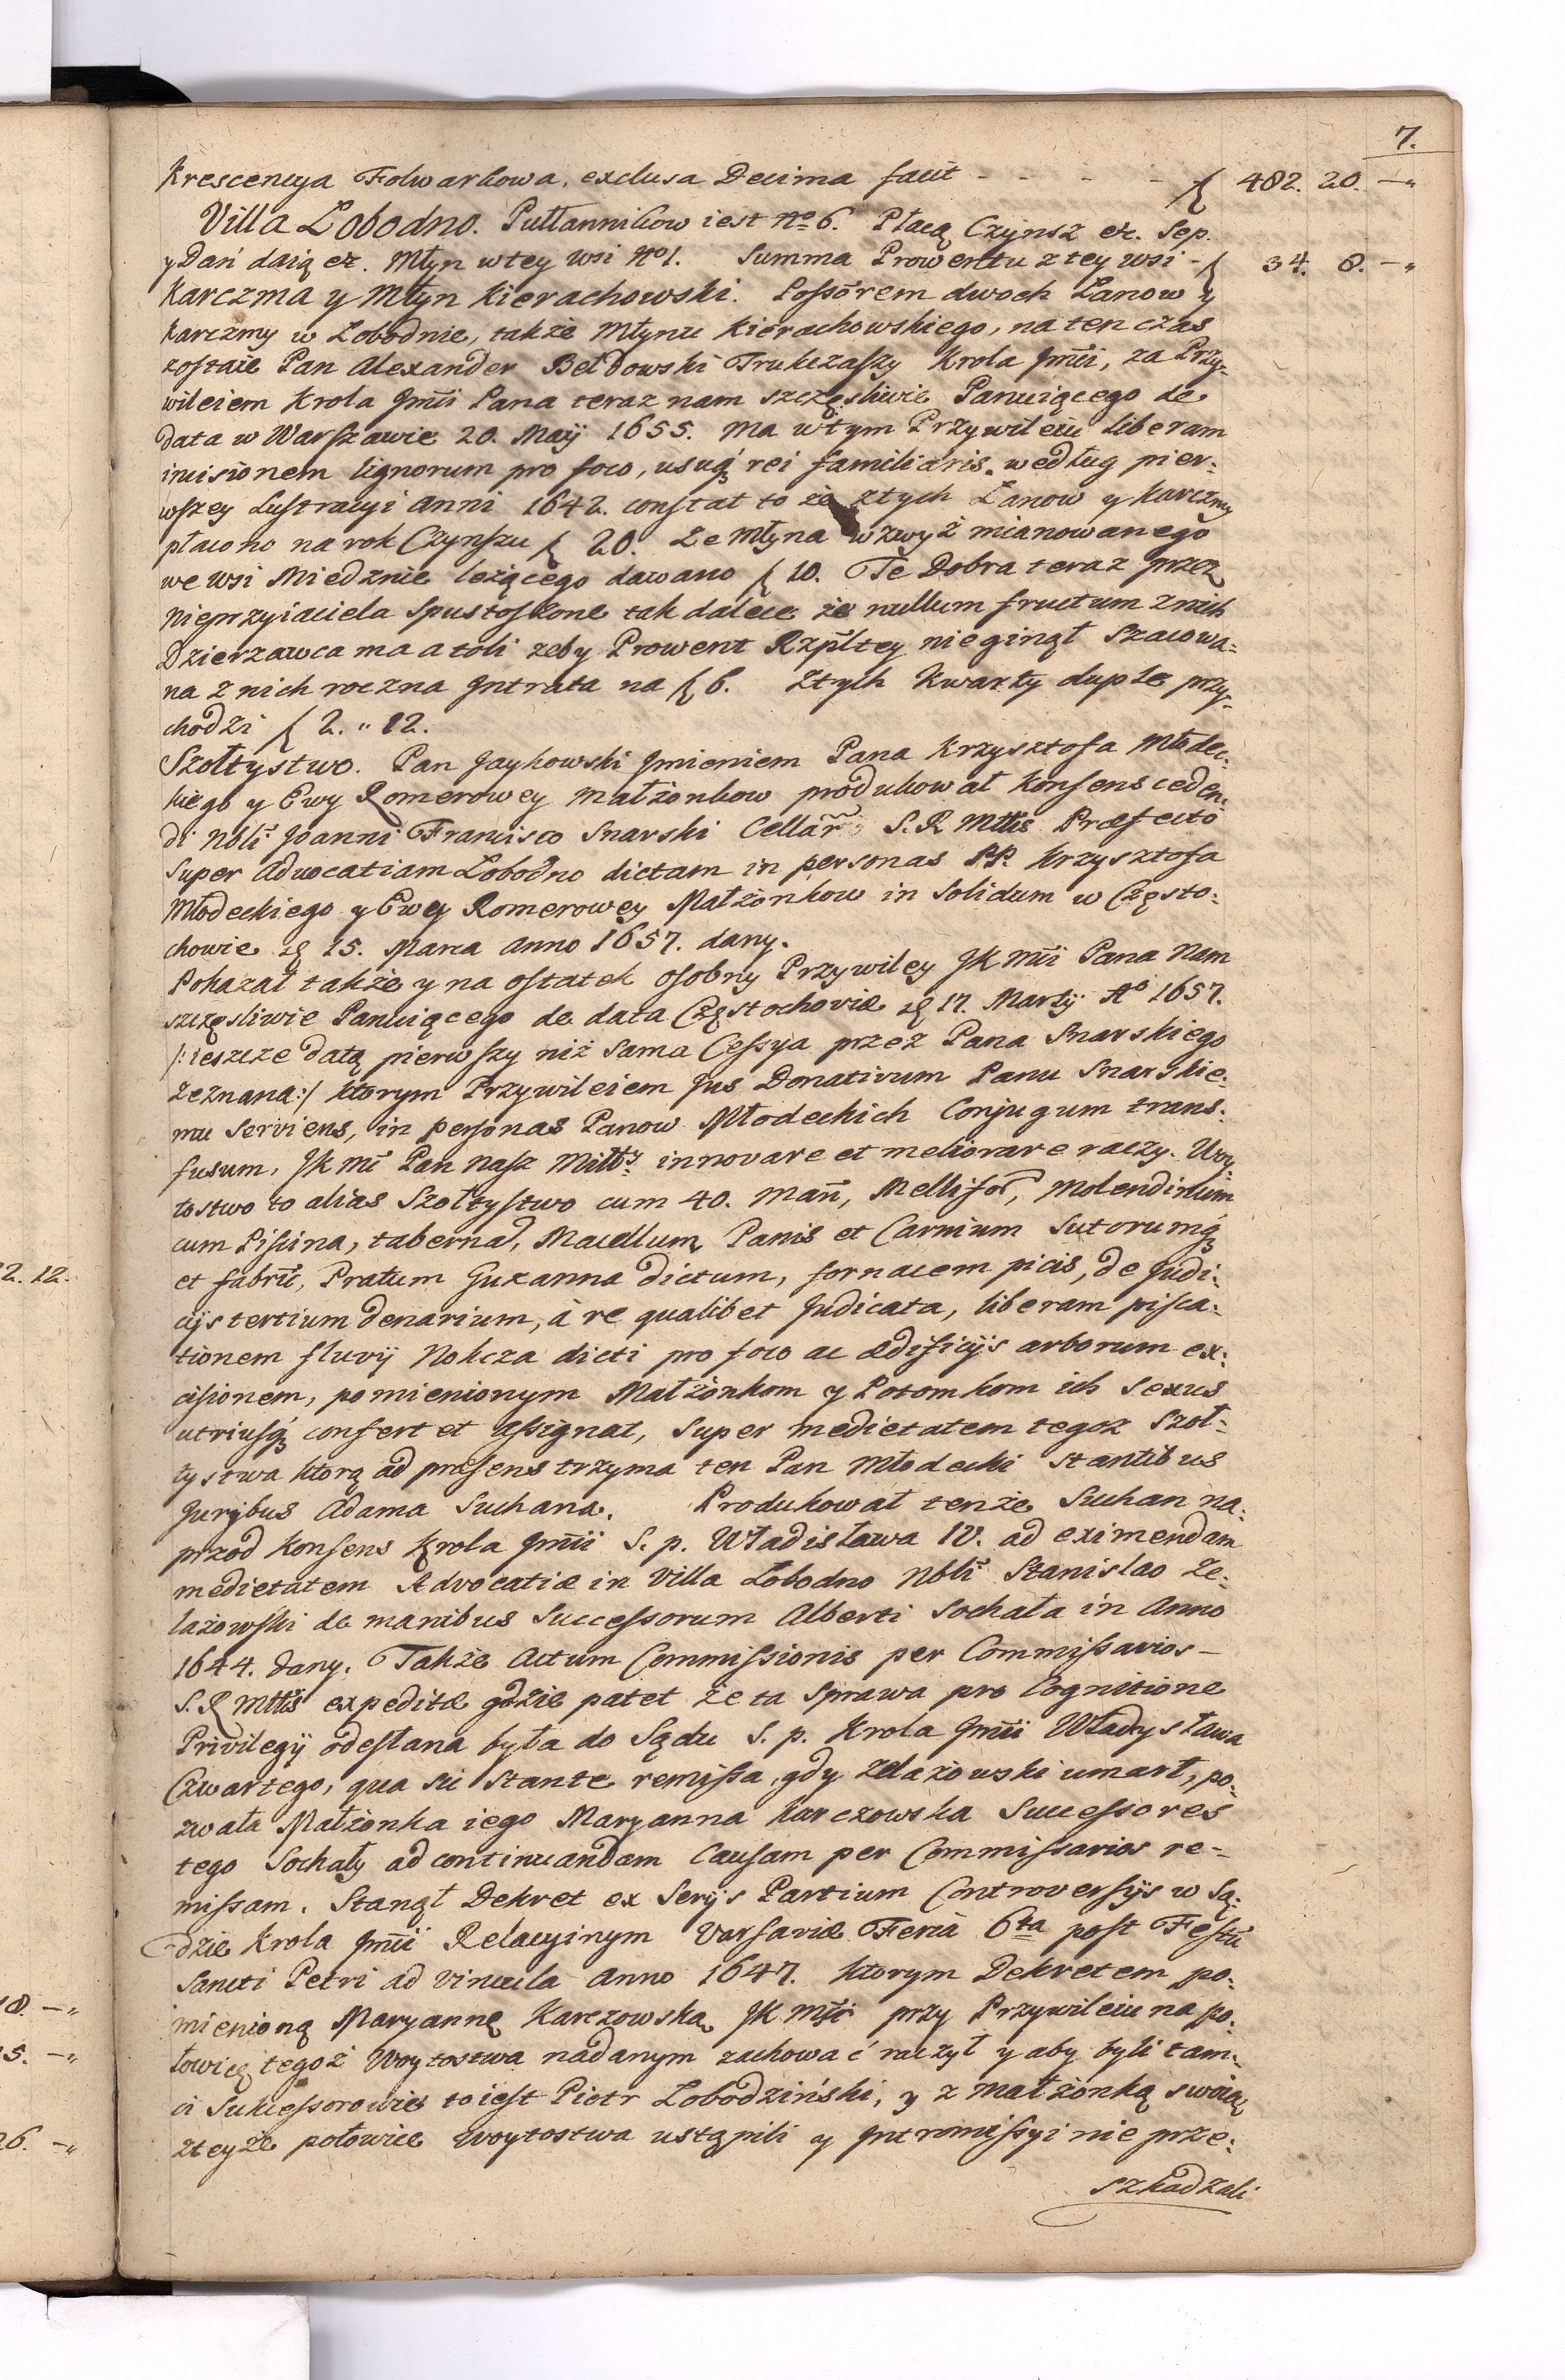 7.
Krescencya Folwarkowa, exclusa Decima facit - - - - - f 482. 20. —„
Villa Łobodno. Pułłannikow iest No 6. Płacą Czynsz etc. Sep.
y Dań daią etc. Młyn w tey wsi No 1. Summa Prowentu z tey wsi - f 34. 8. —„
Karczma y Młyn Kierachowski. Possõrem dwoch Łanow y
Karczmy w Łobodnie, także Młynu Kierachowskiego, na ten czas
zostaie Pan Alexander Bełdowski Trukczaszy Krola Jmci, za Przy-
wileiem Krola Jmci Pana teraz nam szczęsliwie Panuiącego de
data w Warszawie 20. Maij 1655. Ma w tym Przywileiu liberam
incisionem lignorum pro foco, usuq rei familiaris. według pier:
wszey Lustracyi Anni 1642. constat to że z tych Łanow y Karczmy
płacono na rok Czynszu f 20. Ze Młyna wzwyż mianowanego
we wsi Miedznie leżącego dawano f 10. Te Dobra teraz przez
nieprzyiaciela spustoszone tak dalece że nullum fructum z nich
Dzierzawca ma atoli zeby Prowent Rzpltey nieginął Szacowa=
na z nich roczna Jntrata na f 6. Ztych Kwarty duple przy-
chodzi f 2. „ 12.
Szołtystwo. Pan Jaykowski Jmieniem Pana Krzysztofa Młodec:
kiego y Ewy Romerowey Małżonkow produkował Konsens ceden:
di Nbli Joanni Francisco Snarski Cellar S. R Mttis Præfecto
super Advocatiam Łobodno dictam in personas PP. Krzysztofa
Młodeckiego y Ewy Romerowey Małżonkow in Solidum w Często:
chowie d 15. Marca Anno 1657. dany.
Pokazał także y na ostatek osobny Przywiley JK Mci Pana Nam
szczęsliwie Panuiącego de data Częstochoviæ d 17. Martij Ao 1657.
/:ieszcze datą pierwszy niż sama Cessya przez Pana Snarskiego
zeznana:/ ktorym Przywileiem Jus Donativum Panu Snarskie:
mu serviens, in personas Panow Młodeckich Conjugum trans:
fusum, JK Mć Pan nasz Miłty innovare et meliorare raczy. Woy:
tostwo to alias Szołtystwo cum 40. Mañ, Mellifor, Molendinum
cum Piscina, taberna, Macellum Panis et Carnium Sutorumq
et fabrũ, Pratum Guzanna dictum, fornacem picis, de Judi:
cijs tertium denarium, à re qualibet Judicata, liberam pisca:
tionem fluvij Nokcza dicti pro foco ac ædificijs arborum ex:
cisionem, pomienionym Małżonkom y Potomkom ich sexus
utriusq confert et assignat, super medietatem tegoz Szoł-
tystwa ktorą ad præsens trzyma ten Pan Młodecki stantibus
Juribus Adama Suchana. Produkował tenże Suchan na:
przod Konsens Krola Jmci S. p. Władisława IV. ad eximendam
medietatem Advocatiæ in Villa Łobodno Nbli Stanislao Ze-
lazowski de manibus Successorum Alberti Sochała in Anno
1644. dany. Także Actum Commissionis per Commissarios –
S. R Mttis expeditæ gdzie patet że ta sprawa pro Cognitione
Privilegij odesłana była do Sądu S. p. Krola Jmci Władysława
Czwartego, qua sic stante remissa, gdy Zelazowski umarł, po:
zwała Małżonka iego Maryanna Karczowska Successores
tego Sochały ad continuandam Causam per Commissarios re-
missam. Stanął Dekret ex serijs Partium Controversijs w Są:
dzie Krola Jmci Relacyinym Varsaviæ Feria 6ta post Festũ
Sancti Petri ad vincula Anno 1647. ktorym Dekretem po:
mienioną Maryannę Karczowską JK Mść przy Przywileiu na po:
łowicę tegoż Woytostwa nadanym zachować raczył y aby byli tam:
ci Sukcessorowie to iest Piotr Łobodziński, y z Małżonką swoią
zteyże połowice Woytostwa ustąpili y Jntromissyi nie prze:
szkadzali
2. 12.
18. —„
15. —„
26. —„